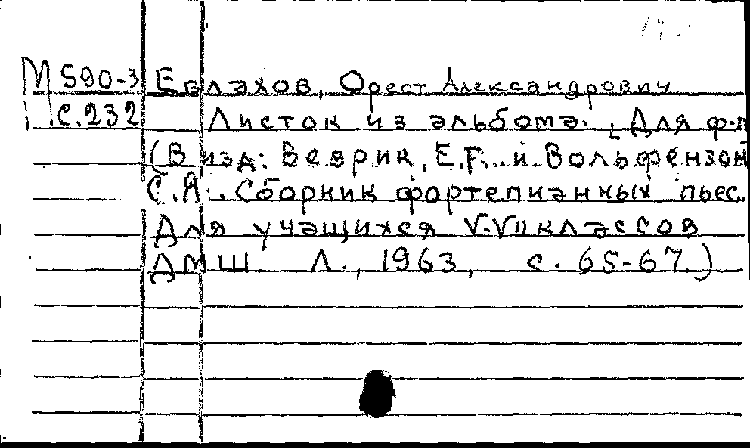 М 590-3 Евлахов, Орест Александрович
с.232 Листок из альбома. [Для ф-п
(В изд: Веврик, Е.Г. и Вольфензон
С.Я. Сборник фортепианных пьес.
Для учащихся V-VII классов
ДМШ. Л., 1963, с. 65-67.)